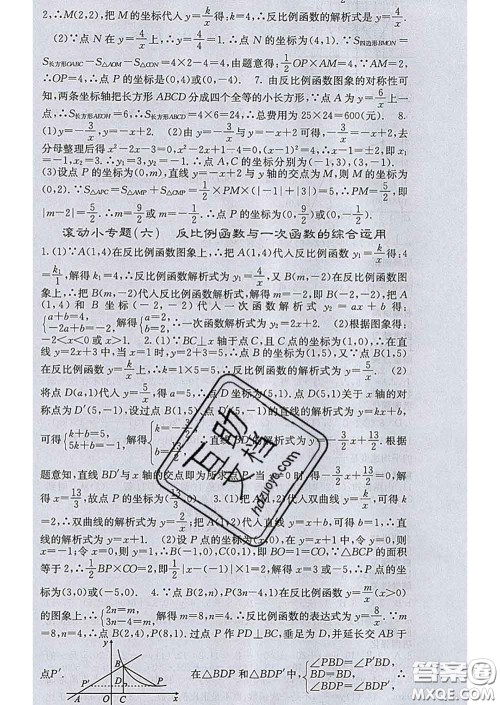 2,∴M(2,2),把M的坐标代入y=k/x得:k=4,∴反比例函数的解析式是y=4/x.
(2)∵点N在y=4/x上,∴y=4/x=1.∴点N的坐标为(4,1).∵S四边形BMON=
S长方形OABC-S△AOM-S△CON=4×2-4=4,由题意得:1/2OP×AM=4,∵AM=2,
∴OP=4,∴点P的坐标是(0,4)或(0,-4). 7.由反比例函数图象的对称性可
知,两条坐标轴把长方形ABCD分成四个全等的小长方形,∵点A为y=6/x上一
点,∴S长方形AEOH=6,∴S长方形ABCD=4×6=24,∴总费用为25×24=600(元). 8.
(1)y=-3/x,y=-x+2 (2)由y=-3/x与y=-x+2可得,-3/x=-x+2;去
分母整理后得x²-2x-3=0,x²-2x+1-4=0,(x-1)²=4,∴x-1=±2,即x₁
=-1,x₂=3.∴y₁=3,y₂=-1.∴点A,C的坐标分别为(-1,3),(3,-1).
(3)设点P的坐标为(0,m),直线y=-x+2与y轴的交点为M,则M的坐标为
(0,2).∵S△APC=S△AMP+S△CMP=1/2×PM×(|-1|+|3|)=5.∴PM=5/2,即
|m-2|=5/2.∴m=9/2或m=-1/2.∴点P的坐标为(0,9/2)或(0,-1/2).
滚动小专题(六) 反比例函数与一次函数的综合运用
1.(1)∵A(1,4)在反比例函数图象上,∴把A(1,4)代入反比例函数y₁=k₁/x得:4
=k₁/1,解得k₁=4,∴反比例函数解析式为y₁=4/x,又B(m,-2)在反比例函数图
象上,∴把B(m,-2)代入反比例函数解析式,解得m=-2,即B(-2,-2),把A
(1,4)和B坐标(-2,-2)代入一次函数解析式y₂=ax+b得:
{a+b=4,-2a+b=-2,解得{a=2,b=2.∴一次函数解析式为y₂=2x+2. (2)根据图象得:
-2<x<0或x>1. 2.(1)∵BC⊥x轴于点C,且C点的坐标为(1,0),∴在直
线y=2x+3中,当x=1时,y=2+3=5,∴点B的坐标为(1,5),又∵点B(1,5)
在反比例函数y=k/x上,∴k=1×5=5,∴反比例函数的解析式为y=5/x. (2)
将点D(a,1)代入y=5/x,得a=5,∴点D坐标为(5,1).点D(5,1)关于x轴的对
称点为D′(5,-1),设过点B(1,5)、点D′(5,-1)的直线的解析式为y=kx+b,
可得{k+b=5,5k+b=-1,解得 ∴直线BD′的解析式为y=-3/2x+13/2.根据
题意知,直线BD′与x轴的交点即为所求点P.当y=0时,得-3/2x+13/2=0,解
得x=13/3,故点P的坐标为(13/3,0). 3.(1)把A(1,2)代入双曲线y=k/x,可得k
=2,∴双曲线的解析式为y=2/x;把A(1,2)代入直线y=x+b,可得b=1,∴直
线的解析式为y=x+1. (2)设P点的坐标为(x,0),在y=x+1中,令y=0,则
x=-1;令x=0,则y=1,∴B(-1,0),C(0,1),即BO=1=CO.∵△BCP的面积
等于2,∴1/2BP×CO=2,即1/2|x-(-1)|×1=2,解得x=3或-5,∴P点的坐
标为(3,0)或(-5,0). 4.∵点B(2,n),P(3n-4,1)在反比例函数y=m/x(x>0)
的图象上,∴{2n=m,3n-4=m.解得m=8,n=4.∴反比例函数的表达式为y=8/x.∵m
=8,n=4,∴点B(2,4),P(8,1).过点P作PD⊥BC,垂足为D,并延长交AB于
点P′. 在△BDP和△BDP′中,{∠PBD=∠P′BD,BD=BD,∠BDP=∠BDP′,∴
y
A
B
P′
D
P
O
C
x
互助文档
hdzuoye.com
答案圈
MXQE.COM